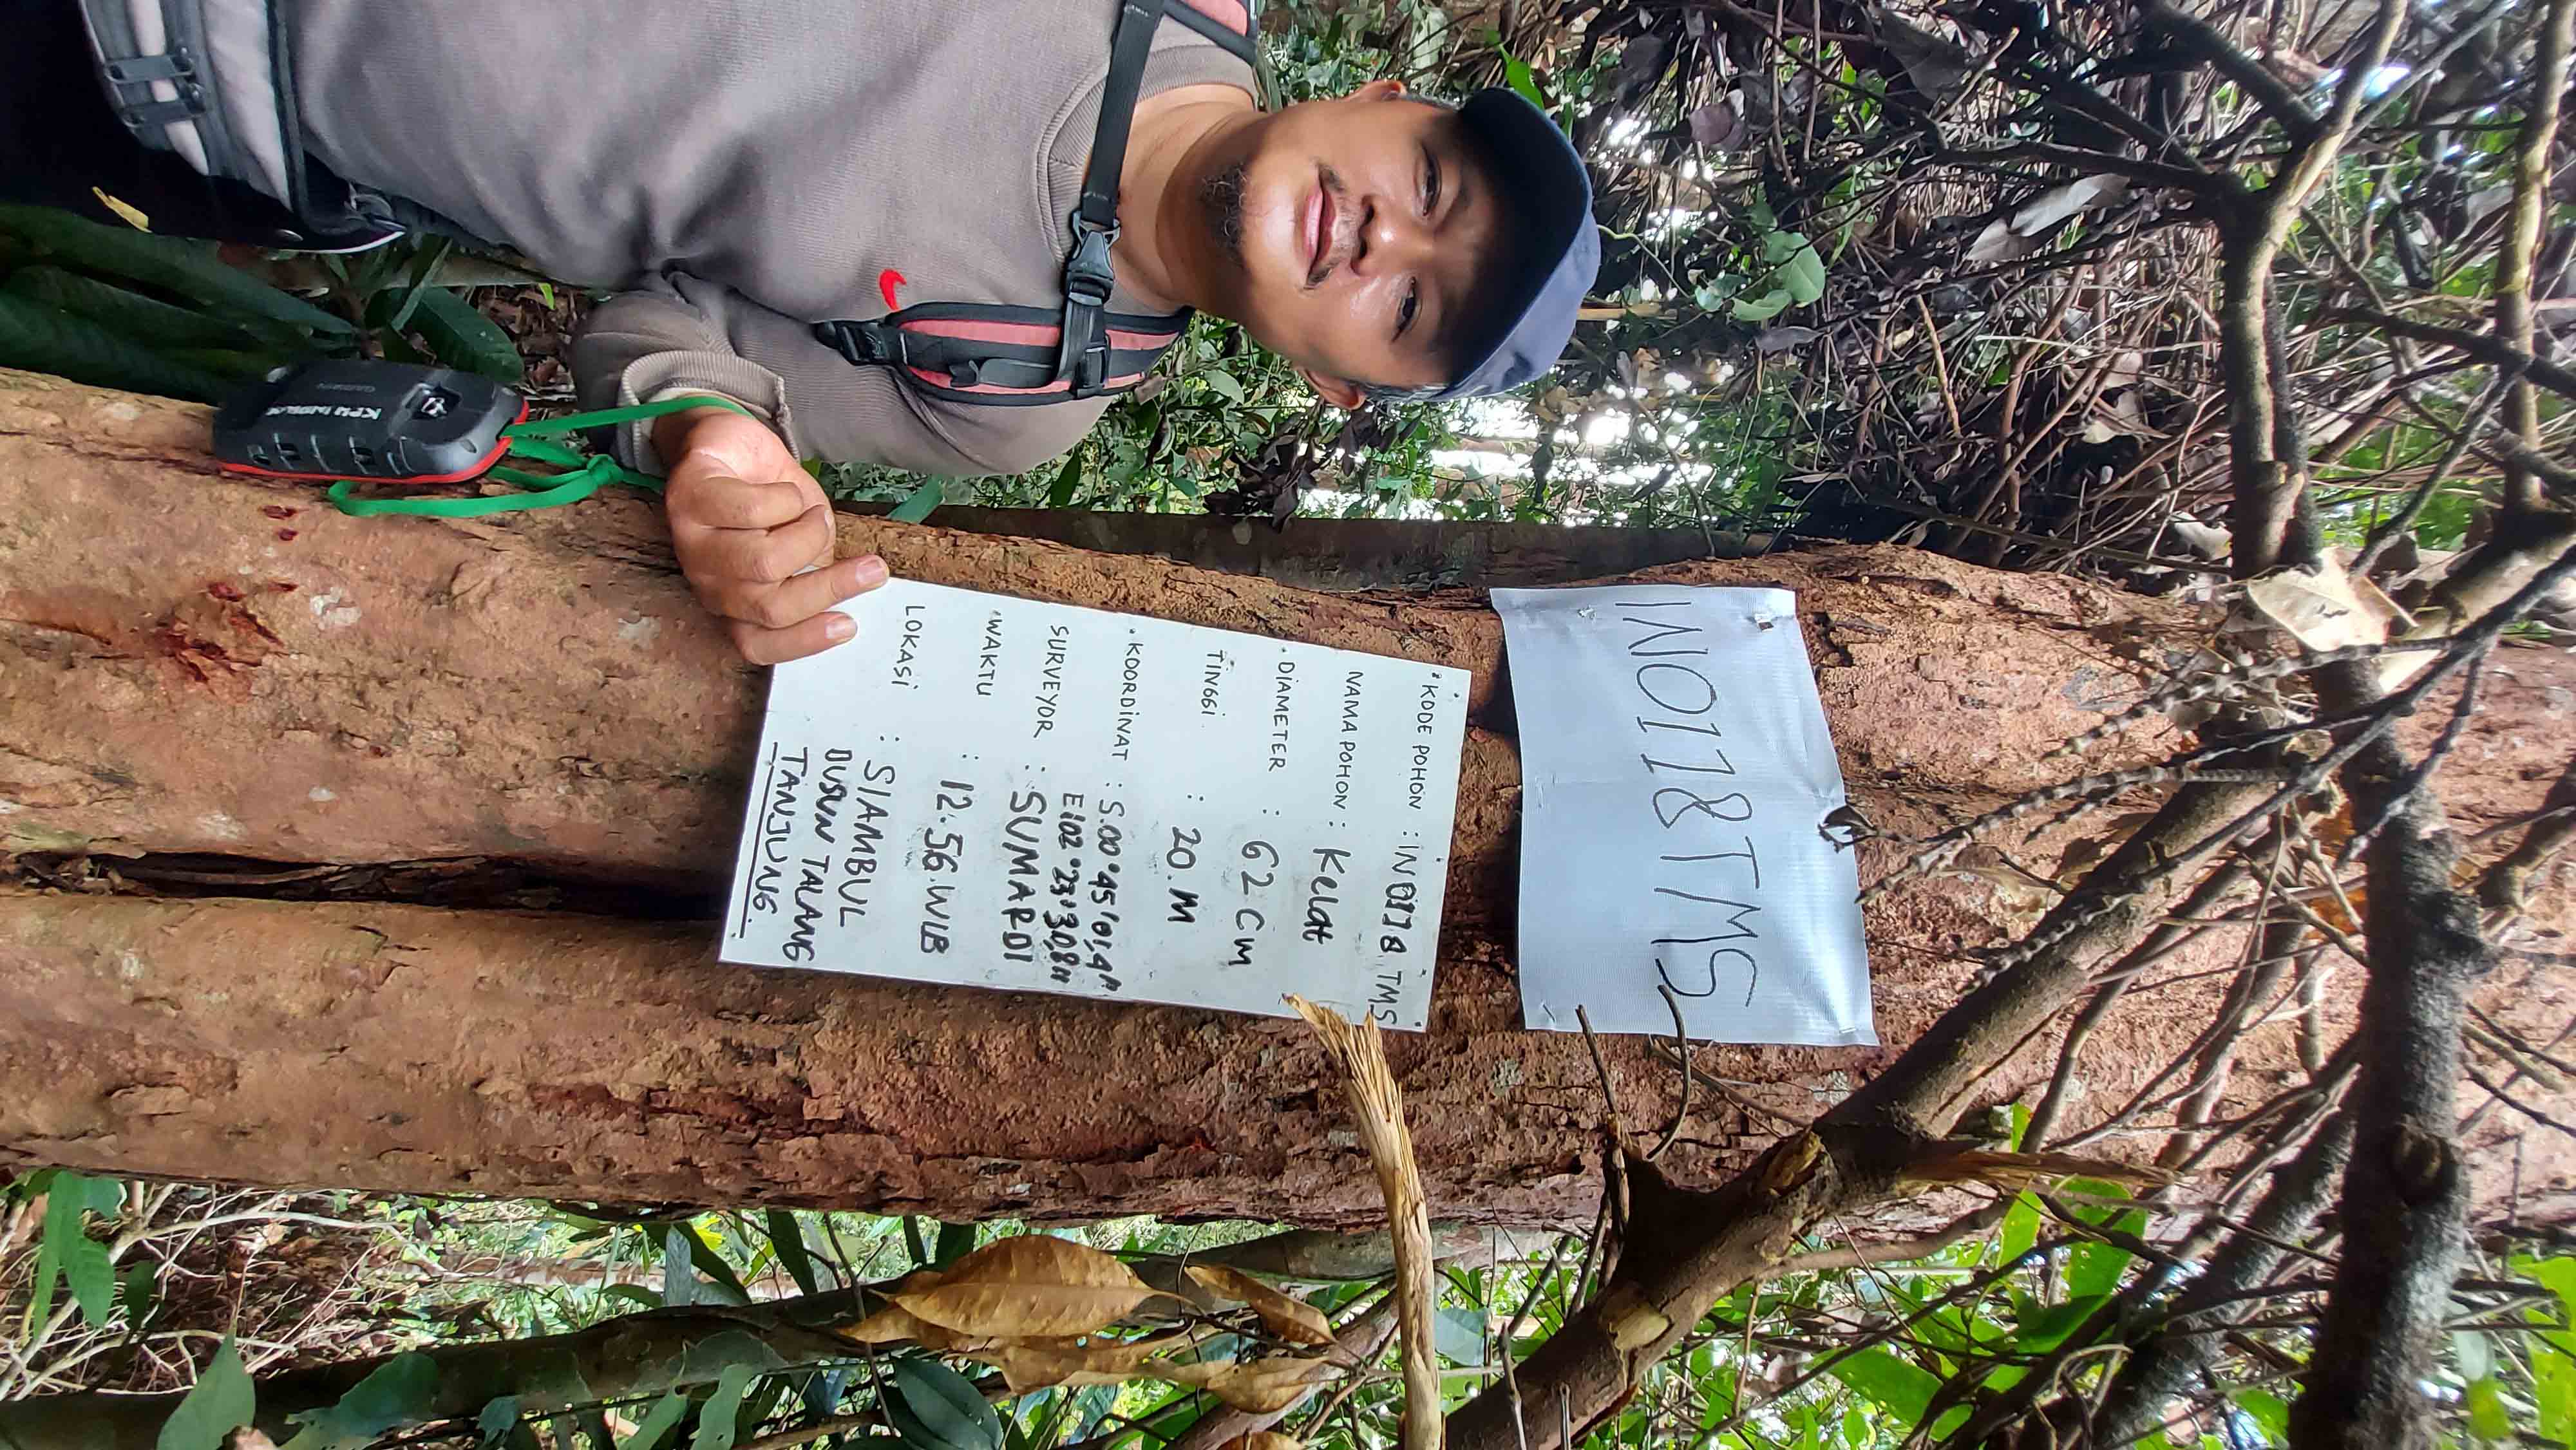 IN0118TMS
KODE POHON : IN 0118 TMS
NAMA POHON : Kelat
DIAMETER : 62 Cm
TINGGI : 20.M
KOORDINAT : S.00°45'01,4"
E102°23'30,8"
SURVEYOR : SUMARDI
WAKTU : 12.56.WIB
LOKASI : SIAMBUL
DUSUN TALANG
TANJUNG.